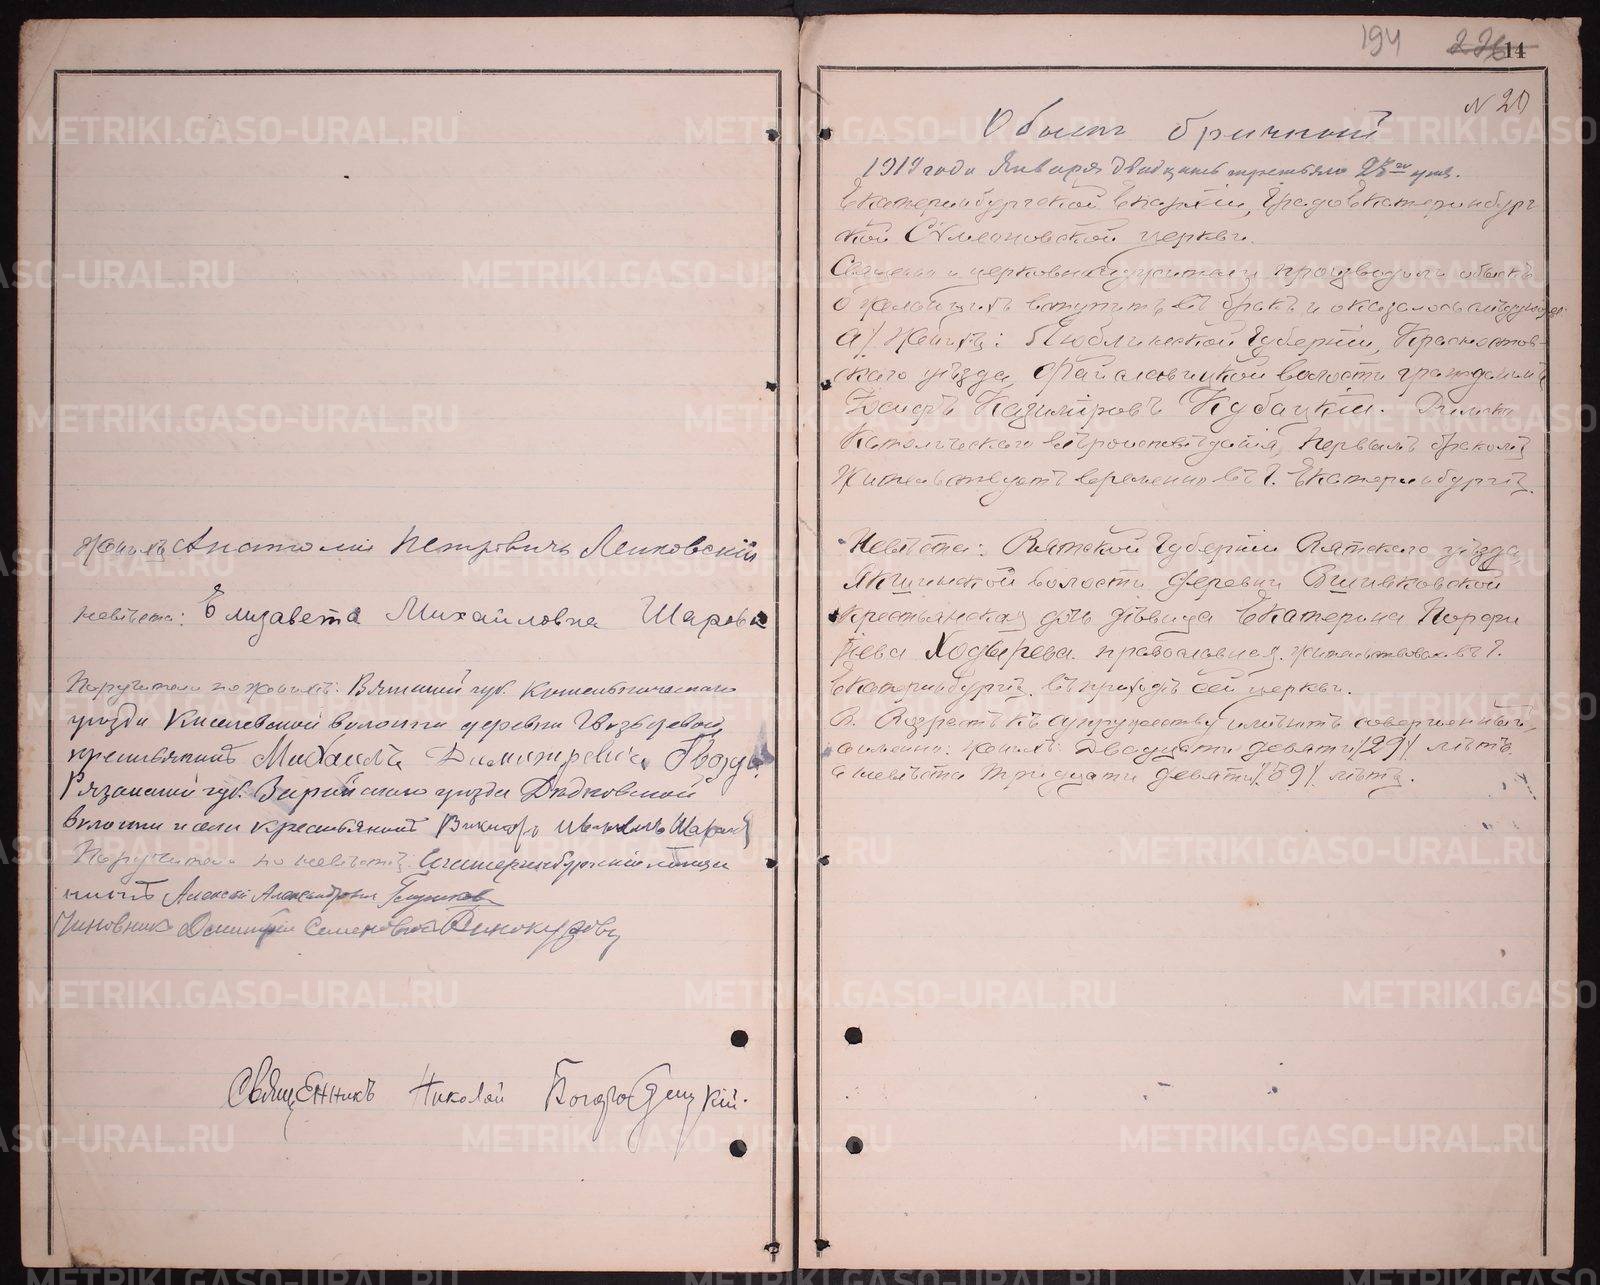 Женихъ Анатолій Петровичъ Ленковскій
невѣста: Елизавета Михайловна Шарова
Поручители по женихѣ: Вятской губ.
уѣзда Киселевской волости деревни
крестьянинъ Михаилъ Димитревъ
Рязанской губ. Зарайскаго уѣзда Дѣдковской
волости и села крестьянинъ Викторъ Ивановичъ
Поручители по невѣстѣ: Екатеринбургскій мѣща
нинъ Алексѣй Александровъ
Чиновникъ Дмитрій Семеновъ Винокуровъ
Священникъ Николай Богородицкій.
194
14
N 20
Обыскъ брачный
1919 года Января двадцать третьяго
Екатеринбургской Епархіи, Градо Екатеринбург
ской Симеоновской церкви.
производили обыскъ
о желающихъ вступить въ бракъ и оказалось слѣдующее:
а) Женихъ: Люблинской Губерніи, Красностов-
скаго уѣзда, волости гражданинъ
Іосифъ Казиміровъ Кубацкій. Римско
Католическаго вѣроисповѣданія, первымъ бракомъ
Жительствуетъ временно въ г. Екатеринбургѣ.
Невѣста: Вятской Губерніи Вятскаго уѣзда
Якшинской волости деревни Вшивковской
крестьянская дочь дѣвица Екатерина Порфи
рiева Ходырева. православная. жительствов. въ г.
Екатеринбургѣ, въ приходѣ сей церкви.
В. Возрастъ къ супружеству имѣютъ совершенный,
а именно: женихъ Двадцати девяти /29/ лѣтъ
а невѣста тридцати девяти /39/ лѣтъ.